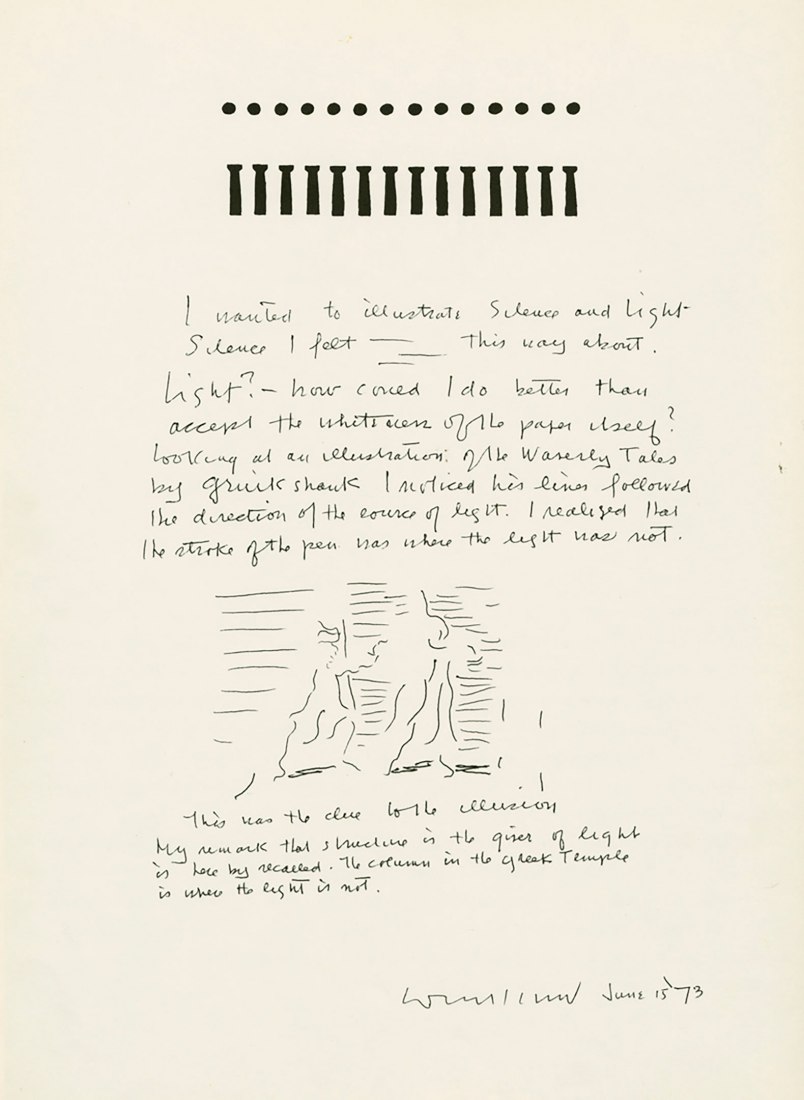 I wanted to illustrate Silence and Light
Silence I felt this way about.
Light? – how could I do better than
accept the whiteness of the paper itself?
Looking at an illustration of the Waverly Tales
by Gruikshank I noticed his lines followed
the direction of the source of light. I realized that
the stroke of the pen was where the light was not.
This was the clue to the illusion
My remark that structure is the giver of light
is here by recalled. The column in the Greek Temple
is where the light is not.
June 15 73